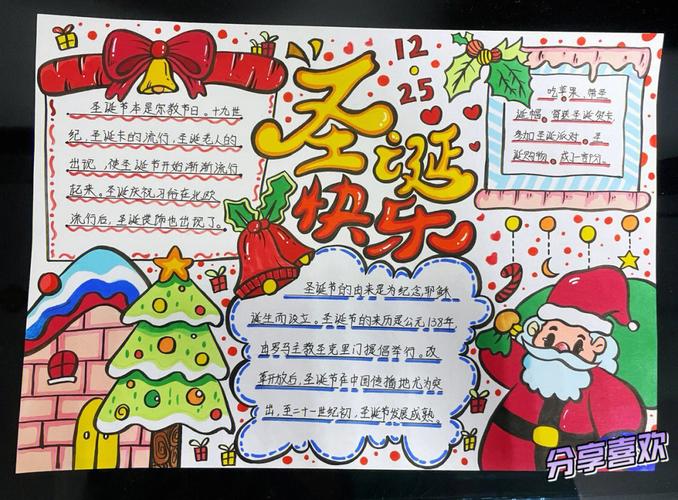 圣诞快乐
12.25
圣诞节本是宗教节日。十九世
纪,圣诞卡的流行,圣诞老人的
出现,使圣诞节开始渐渐流行
起来。圣诞庆祝习俗在北欧
流行后,圣诞装饰也出现了。
吃苹果、带圣
诞帽、寄圣诞贺卡
参加圣诞派对、圣
诞购物、成了一部分。
圣诞节的由来是为纪念耶稣
诞生而设立。圣诞节的来历是公元138年
由罗马主教圣克里门提倡举行。改
革开放后,圣诞节在中国传播地尤为突
出,至二十一世纪初,圣诞节发展成熟。
分享喜欢